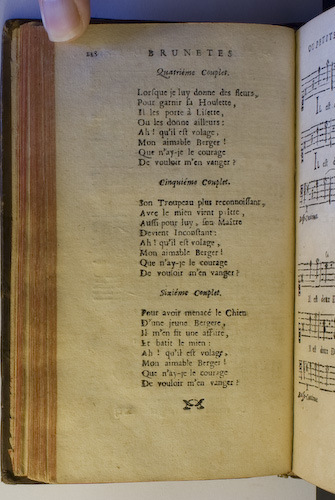 BRUNETES
Quatriéme Couplet.
Lorsque je luy donne des fleurs,
Pour garnir sa Houlette,
Il les porte à Lisette,
Ou les donne ailleurs:
Ah! qu'il est volage,
Mon aimable Berger!
Que n'ay-je le courage
De vouloir m'en vanger?
Cinquiéme Couplet.
Son Troupeau plus reconnoissant,
Avec le mien vient paître,
Aussi pour luy, son Maître
Devient Inconstant:
Ah! qu'il est volage,
Mon aimable Berger!
Que n'ay-je le courage
De vouloir m'en vanger?
Sixiéme Couplet.
Pour avoir menacé le Chien
D'une jeune Bergere,
Il m'en fit une affaire,
Et batit le mien:
Ah! qu'il est volage,
Mon aimable Berger!
Que n'ay-je le courage
De vouloir m'en vanger?